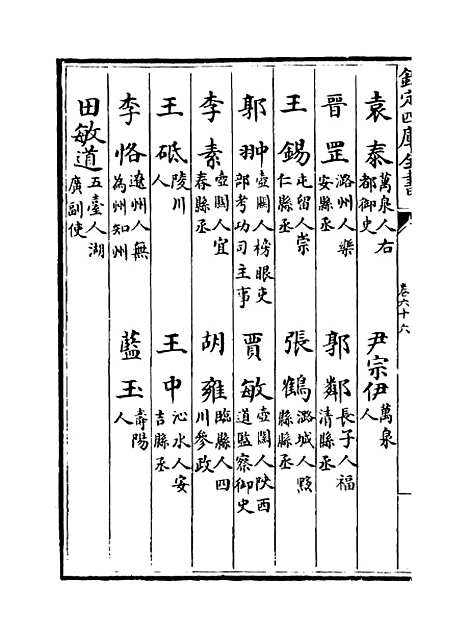 欽定四庫全書
卷六十六
袁泰 萬泉人右都御史
尹宗伊 萬泉人
晉罡 潞州人樂安縣丞
郭鄰 長子人福清縣丞
王錫 屯留人崇仁縣丞
張鶴 潞城人黟縣縣丞
郭翀 壺關人榜眼吏部考功司主事
賈敏 壺關人陜西道監察御史
李素 壺關人宜春縣丞
胡雍 臨縣人四川參政
王砥 陵川人
王中 沁水人安吉縣丞
李恪 遼州人無為州知州
藍玉 壽陽人
田敏道 五臺人湖廣副使